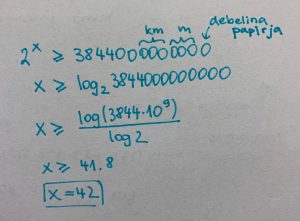 debelina
km m papirja
2^x ≥ 3844000000000
x ≥ log₂ 3844000000000
x ≥ log(3844·10⁹)
log 2
x ≥ 41.8
x = 42